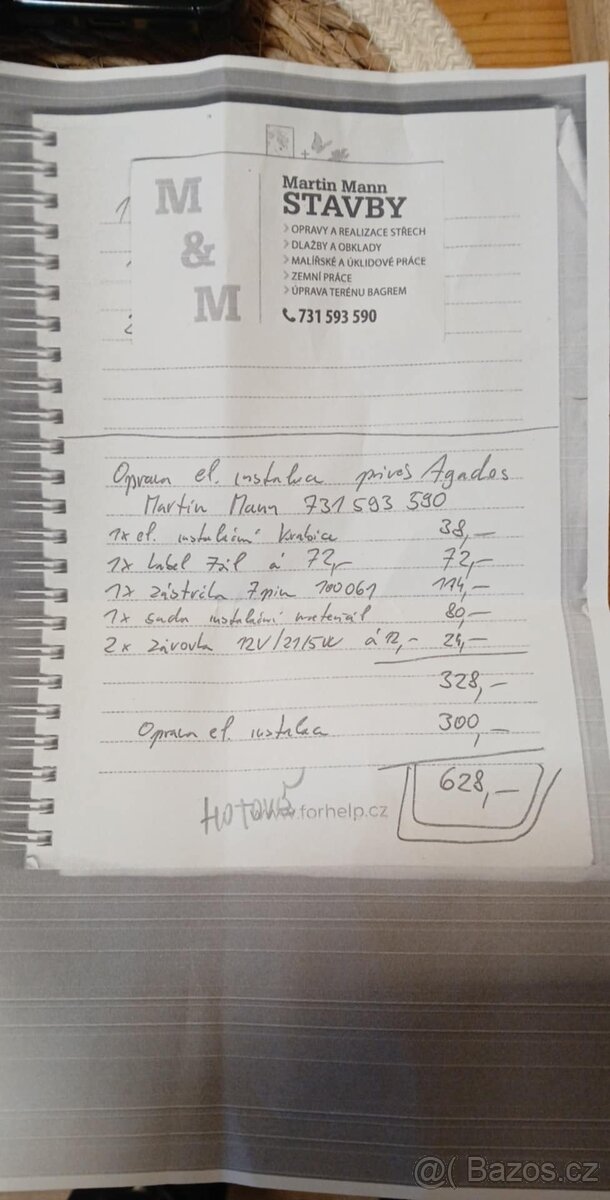 M
&
M
Martin Mann
STAVBY
OPRAVY A REALIZACE STŘECH
DLAŽBY A OBKLADY
MALÍŘSKÉ A ÚKLIDOVÉ PRÁCE
ZEMNÍ PRÁCE
ÚPRAVA TERÉNU BAGREM
731 593 590
Oprava el. instalace přívěs Agados
Martin Mann 731 593 590
1x el. instalační krabice 38,-
1x kabel 7žil á 72,- 72,-
1x zástrčka 7pin 100061 114,-
1x sada instalační materiál 80,-
2x žárovka 12V/21/5W á 12,- 24,-
328,-
Oprava el. instalace 300,-
628,-
HOTOVĚ
www.forhelp.cz
@( Bazos.cz